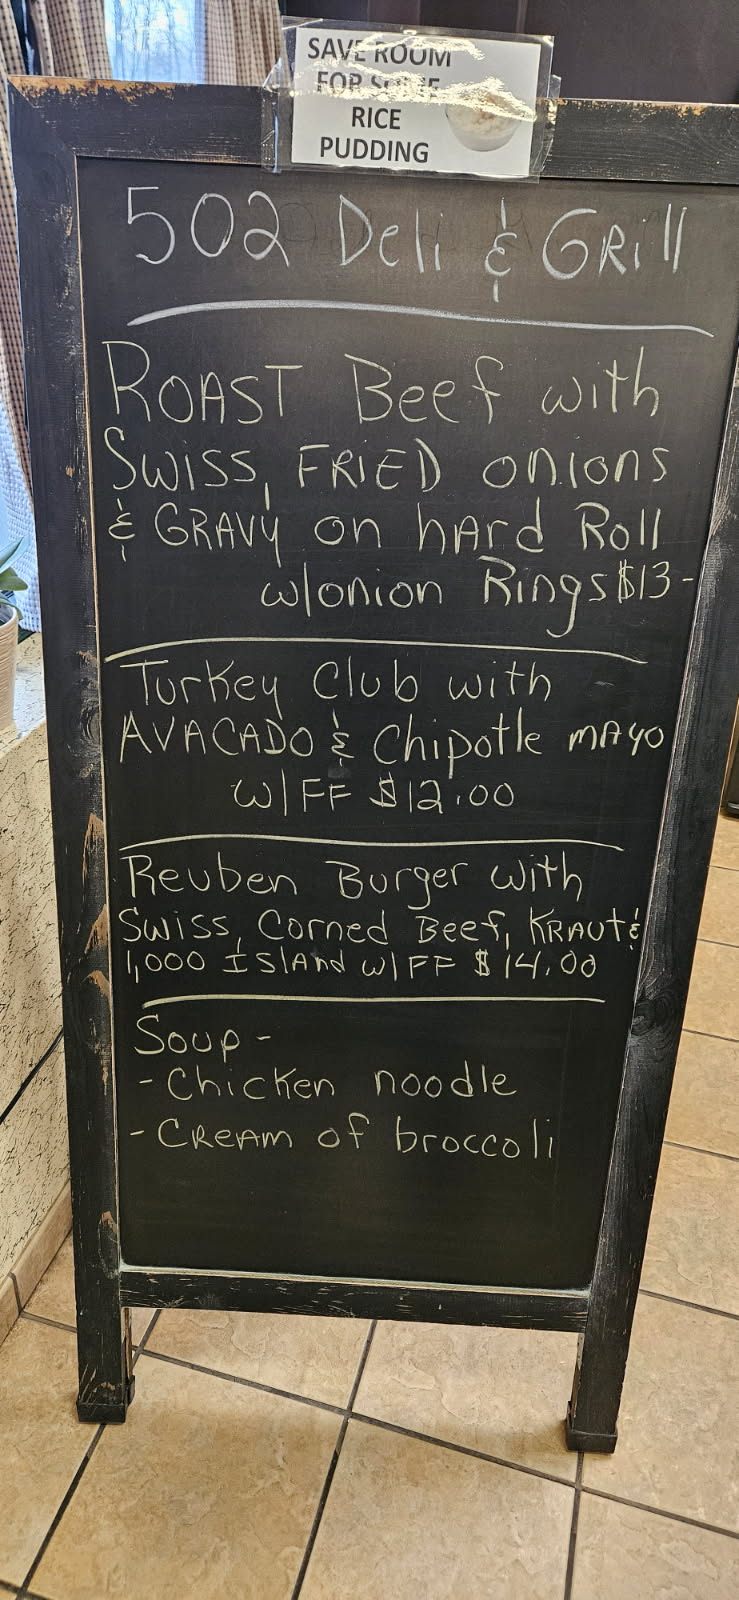 SAVE ROOM
FOR SOME
RICE
PUDDING
502 Deli & GRill
ROAST Beef with
Swiss, FRiED onions
& GRAVY on hArd Roll
w/onion Rings $13-
Turkey Club with
AVACADO & Chipotle mAyo
w/FF $12.00
Reuben Burger with
Swiss, Corned Beef, KRAUT &
1,000 IslAnd w/FF $14.00
Soup -
- Chicken noodle
- CREAm of broccoli